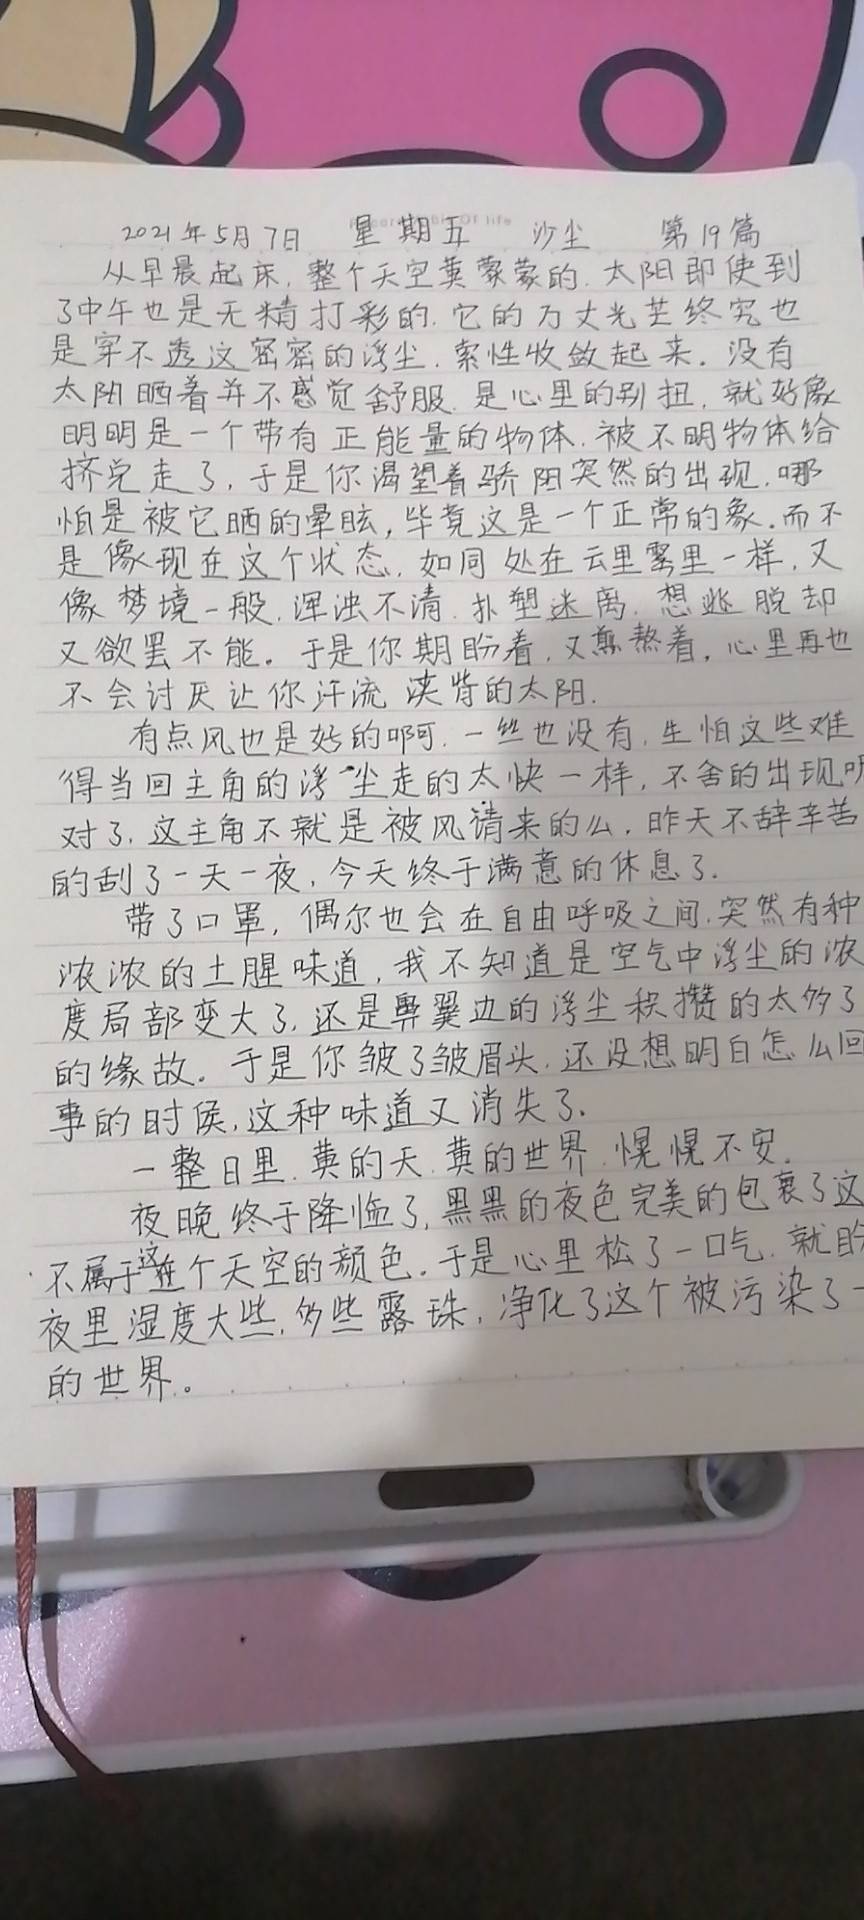 2021年5月7日 星期五 沙尘 第19篇
从早晨起床,整个天空黄蒙蒙的.太阳即使到
了中午也是无精打彩的.它的万丈光芒终究也
是穿不透这密密的浮尘.索性收敛起来.没有
太阳晒着并不感觉舒服.是心里的别扭.就好像
明明是一个带有正能量的物体.被不明物体给
挤兑走了,于是你渴望着骄阳突然的出现.哪
怕是被它晒的晕眩,毕竟这是一个正常的象.而不
是像现在这个状态.如同处在云里雾里一样,又
像梦境一般.浑浊不清.扑塑迷离.想逃脱却
又欲罢不能。于是你期盼着,又煎熬着,心里再也
不会讨厌让你汗流浃背的太阳.
有点风也是好的啊.一丝也没有,生怕这些难
得当回主角的浮尘走的太快一样,不舍的出现
对了,这主角不就是被风请来的么,昨天不辞辛苦
的刮了一天一夜,今天终于满意的休息了.
带了口罩,偶尔也会在自由呼吸之间.突然有种
浓浓的土腥味道,我不知道是空气中浮尘的浓
度局部变大了,还是鼻翼边的浮尘积攒的太多了
的缘故。于是你皱了皱眉头.还没想明白怎么回
事的时侯,这种味道又消失了.
一整日里.黄的天.黄的世界.愰愰不安.
夜晚终于降临了,黑黑的夜色完美的包裹了这
不属于这个天空的颜色.于是心里松了一口气.就盼
夜里湿度大些,多些露珠,净化了这个被污染了一
的世界。